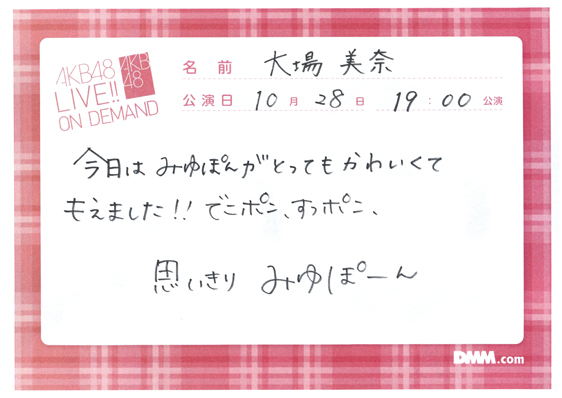 AKB48
LIVE!!
ON DEMAND
AKB
48
名前 大場 美奈
公演日 10月 28日 19:00 公演
今日は みゆぽんがとってもかわいくて
もえました!! でこポン、すっポン、
思いきり みゆぽーん
DMM.com